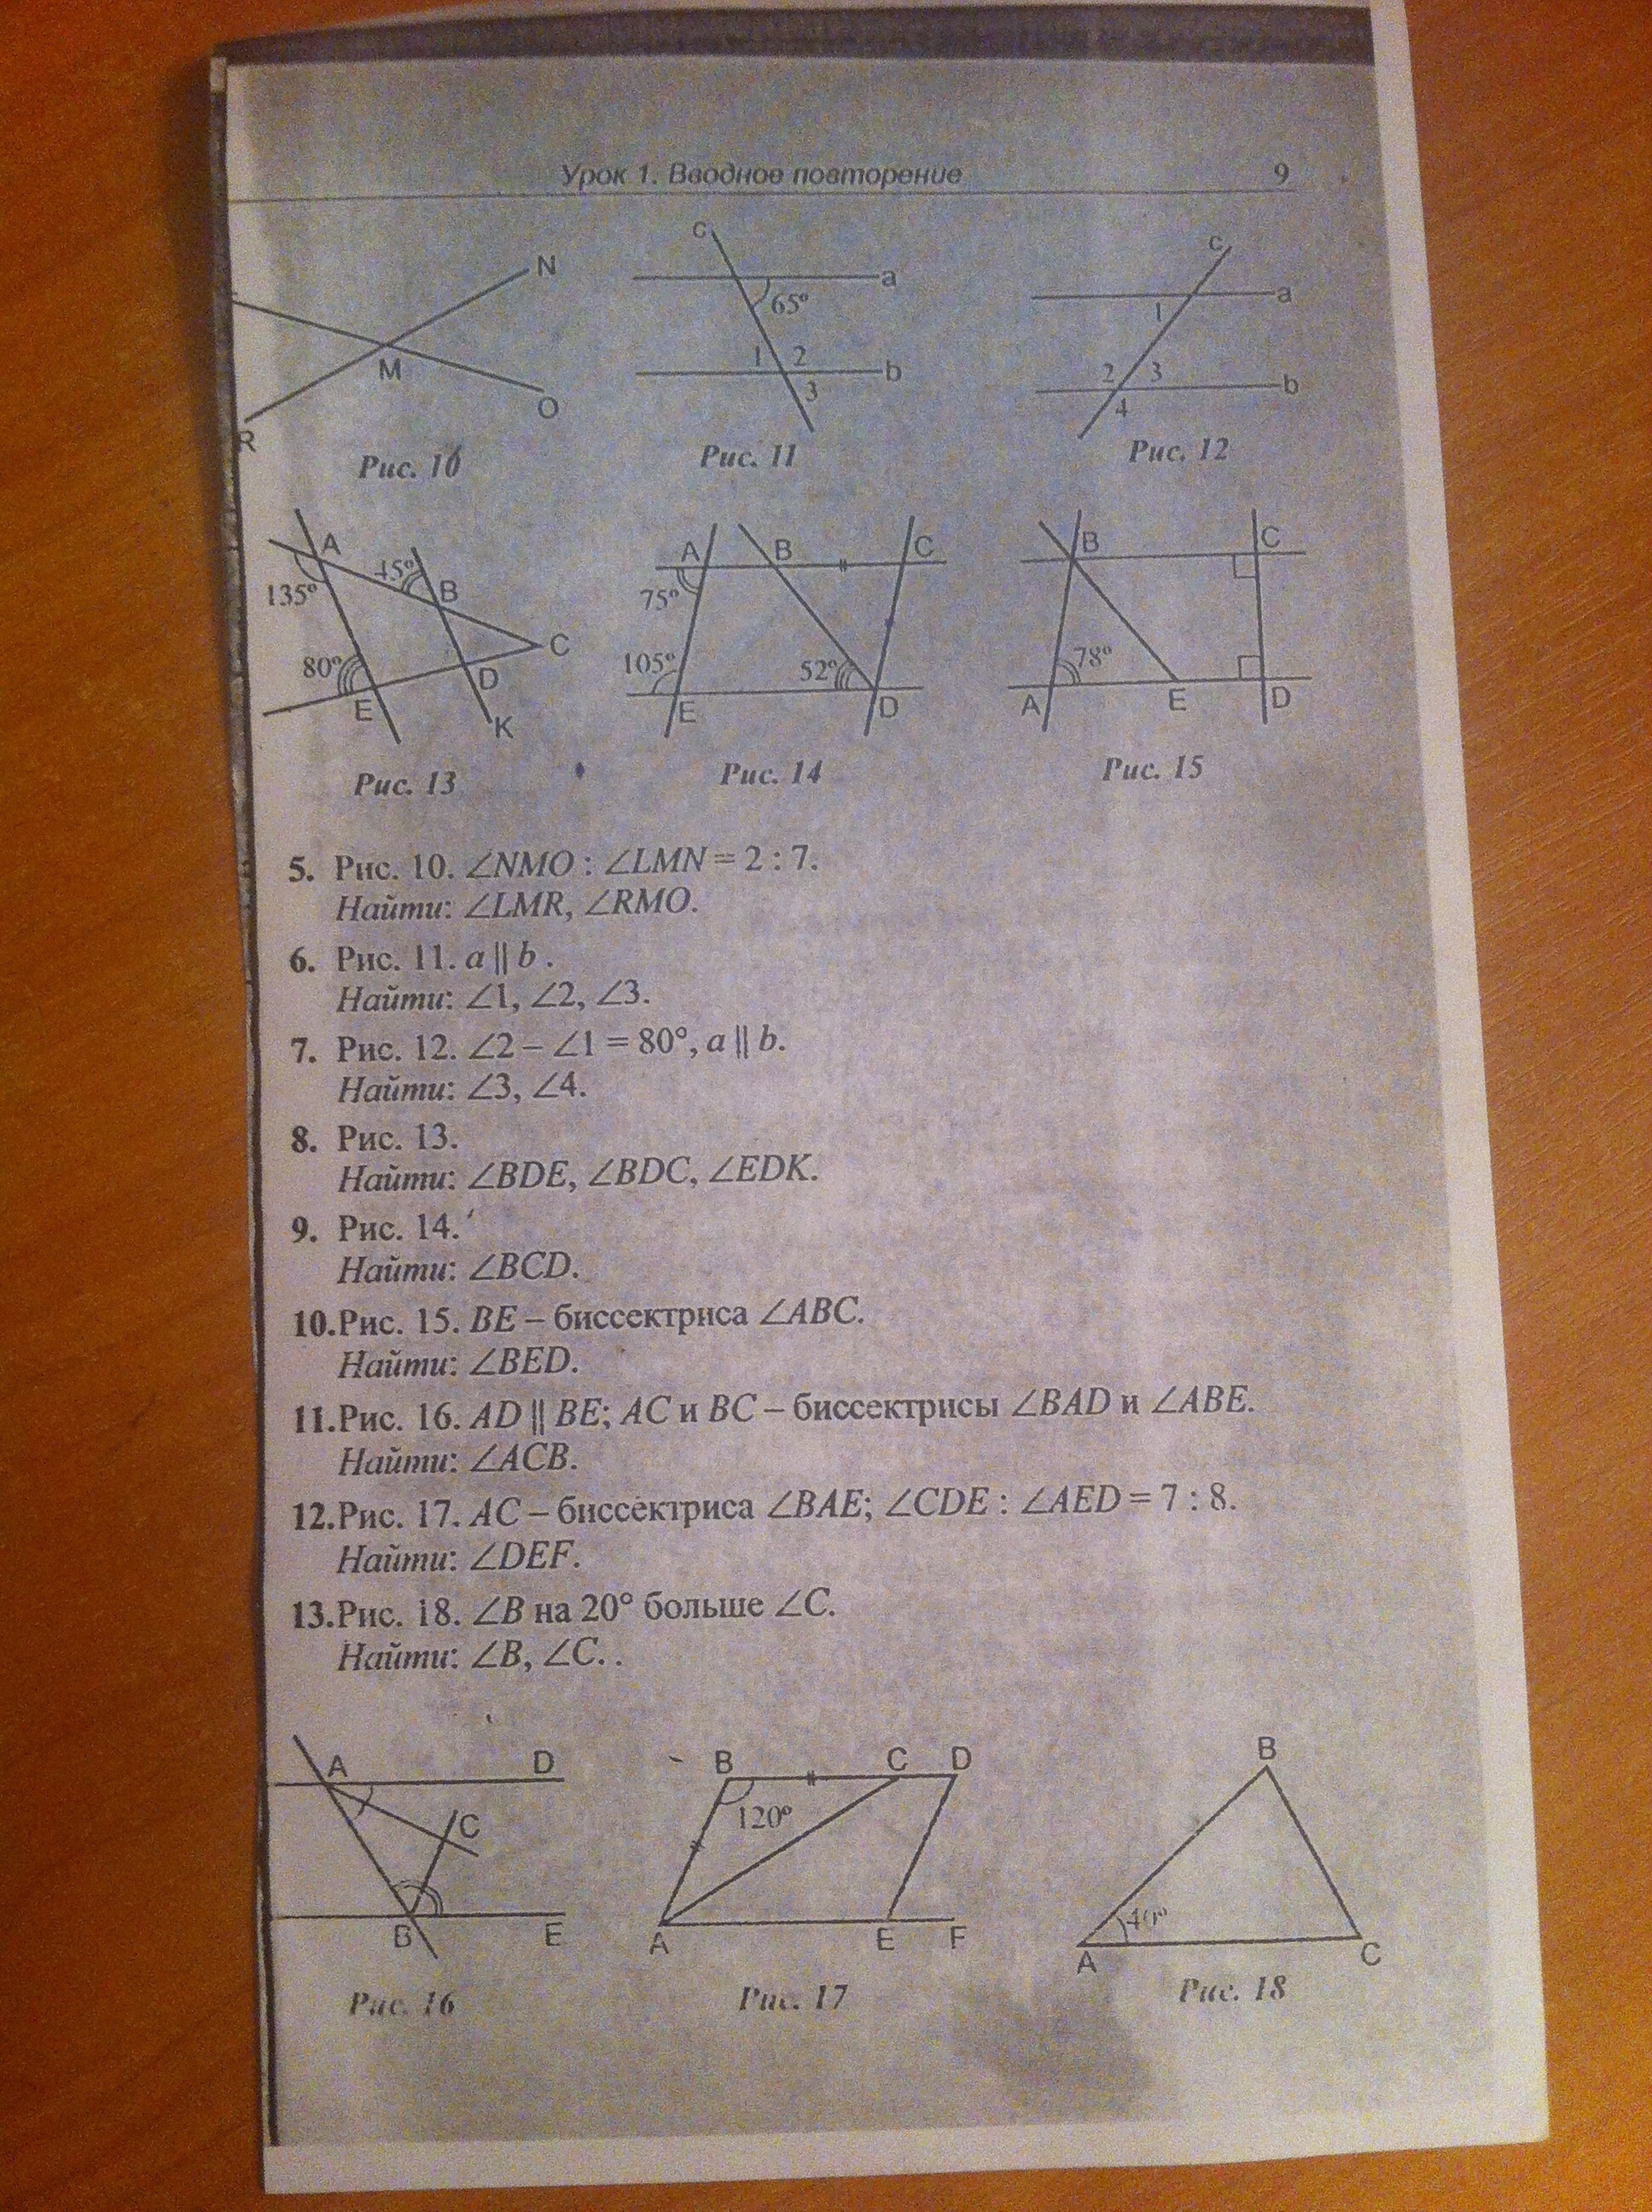 Урок 1. Вводное повторение 9
N
M
O
R
Рис. 10
c
a
65°
1 2
b
3
Рис. 11
c
a
1
2 3
b
4
Рис. 12
A
135°
45°
B
C
80°
D
E
K
Рис. 13
A B C
75°
105° 52°
E D
Рис. 14
B C
78°
A E D
Рис. 15
5. Рис. 10. ∠NMO : ∠LMN = 2 : 7.
Найти: ∠LMR, ∠RMO.
6. Рис. 11. a || b .
Найти: ∠1, ∠2, ∠3.
7. Рис. 12. ∠2 – ∠1 = 80°, a || b.
Найти: ∠3, ∠4.
8. Рис. 13.
Найти: ∠BDE, ∠BDC, ∠EDK.
9. Рис. 14.
Найти: ∠BCD.
10. Рис. 15. BE – биссектриса ∠ABC.
Найти: ∠BED.
11. Рис. 16. AD || BE; AC и BC – биссектрисы ∠BAD и ∠ABE.
Найти: ∠ACB.
12. Рис. 17. AC – биссектриса ∠BAE; ∠CDE : ∠AED = 7 : 8.
Найти: ∠DEF.
13. Рис. 18. ∠B на 20° больше ∠C.
Найти: ∠B, ∠C. .
A D
C
B E
Рис. 16
B C D
120°
A E F
Рис. 17
B
40°
A C
Рис. 18